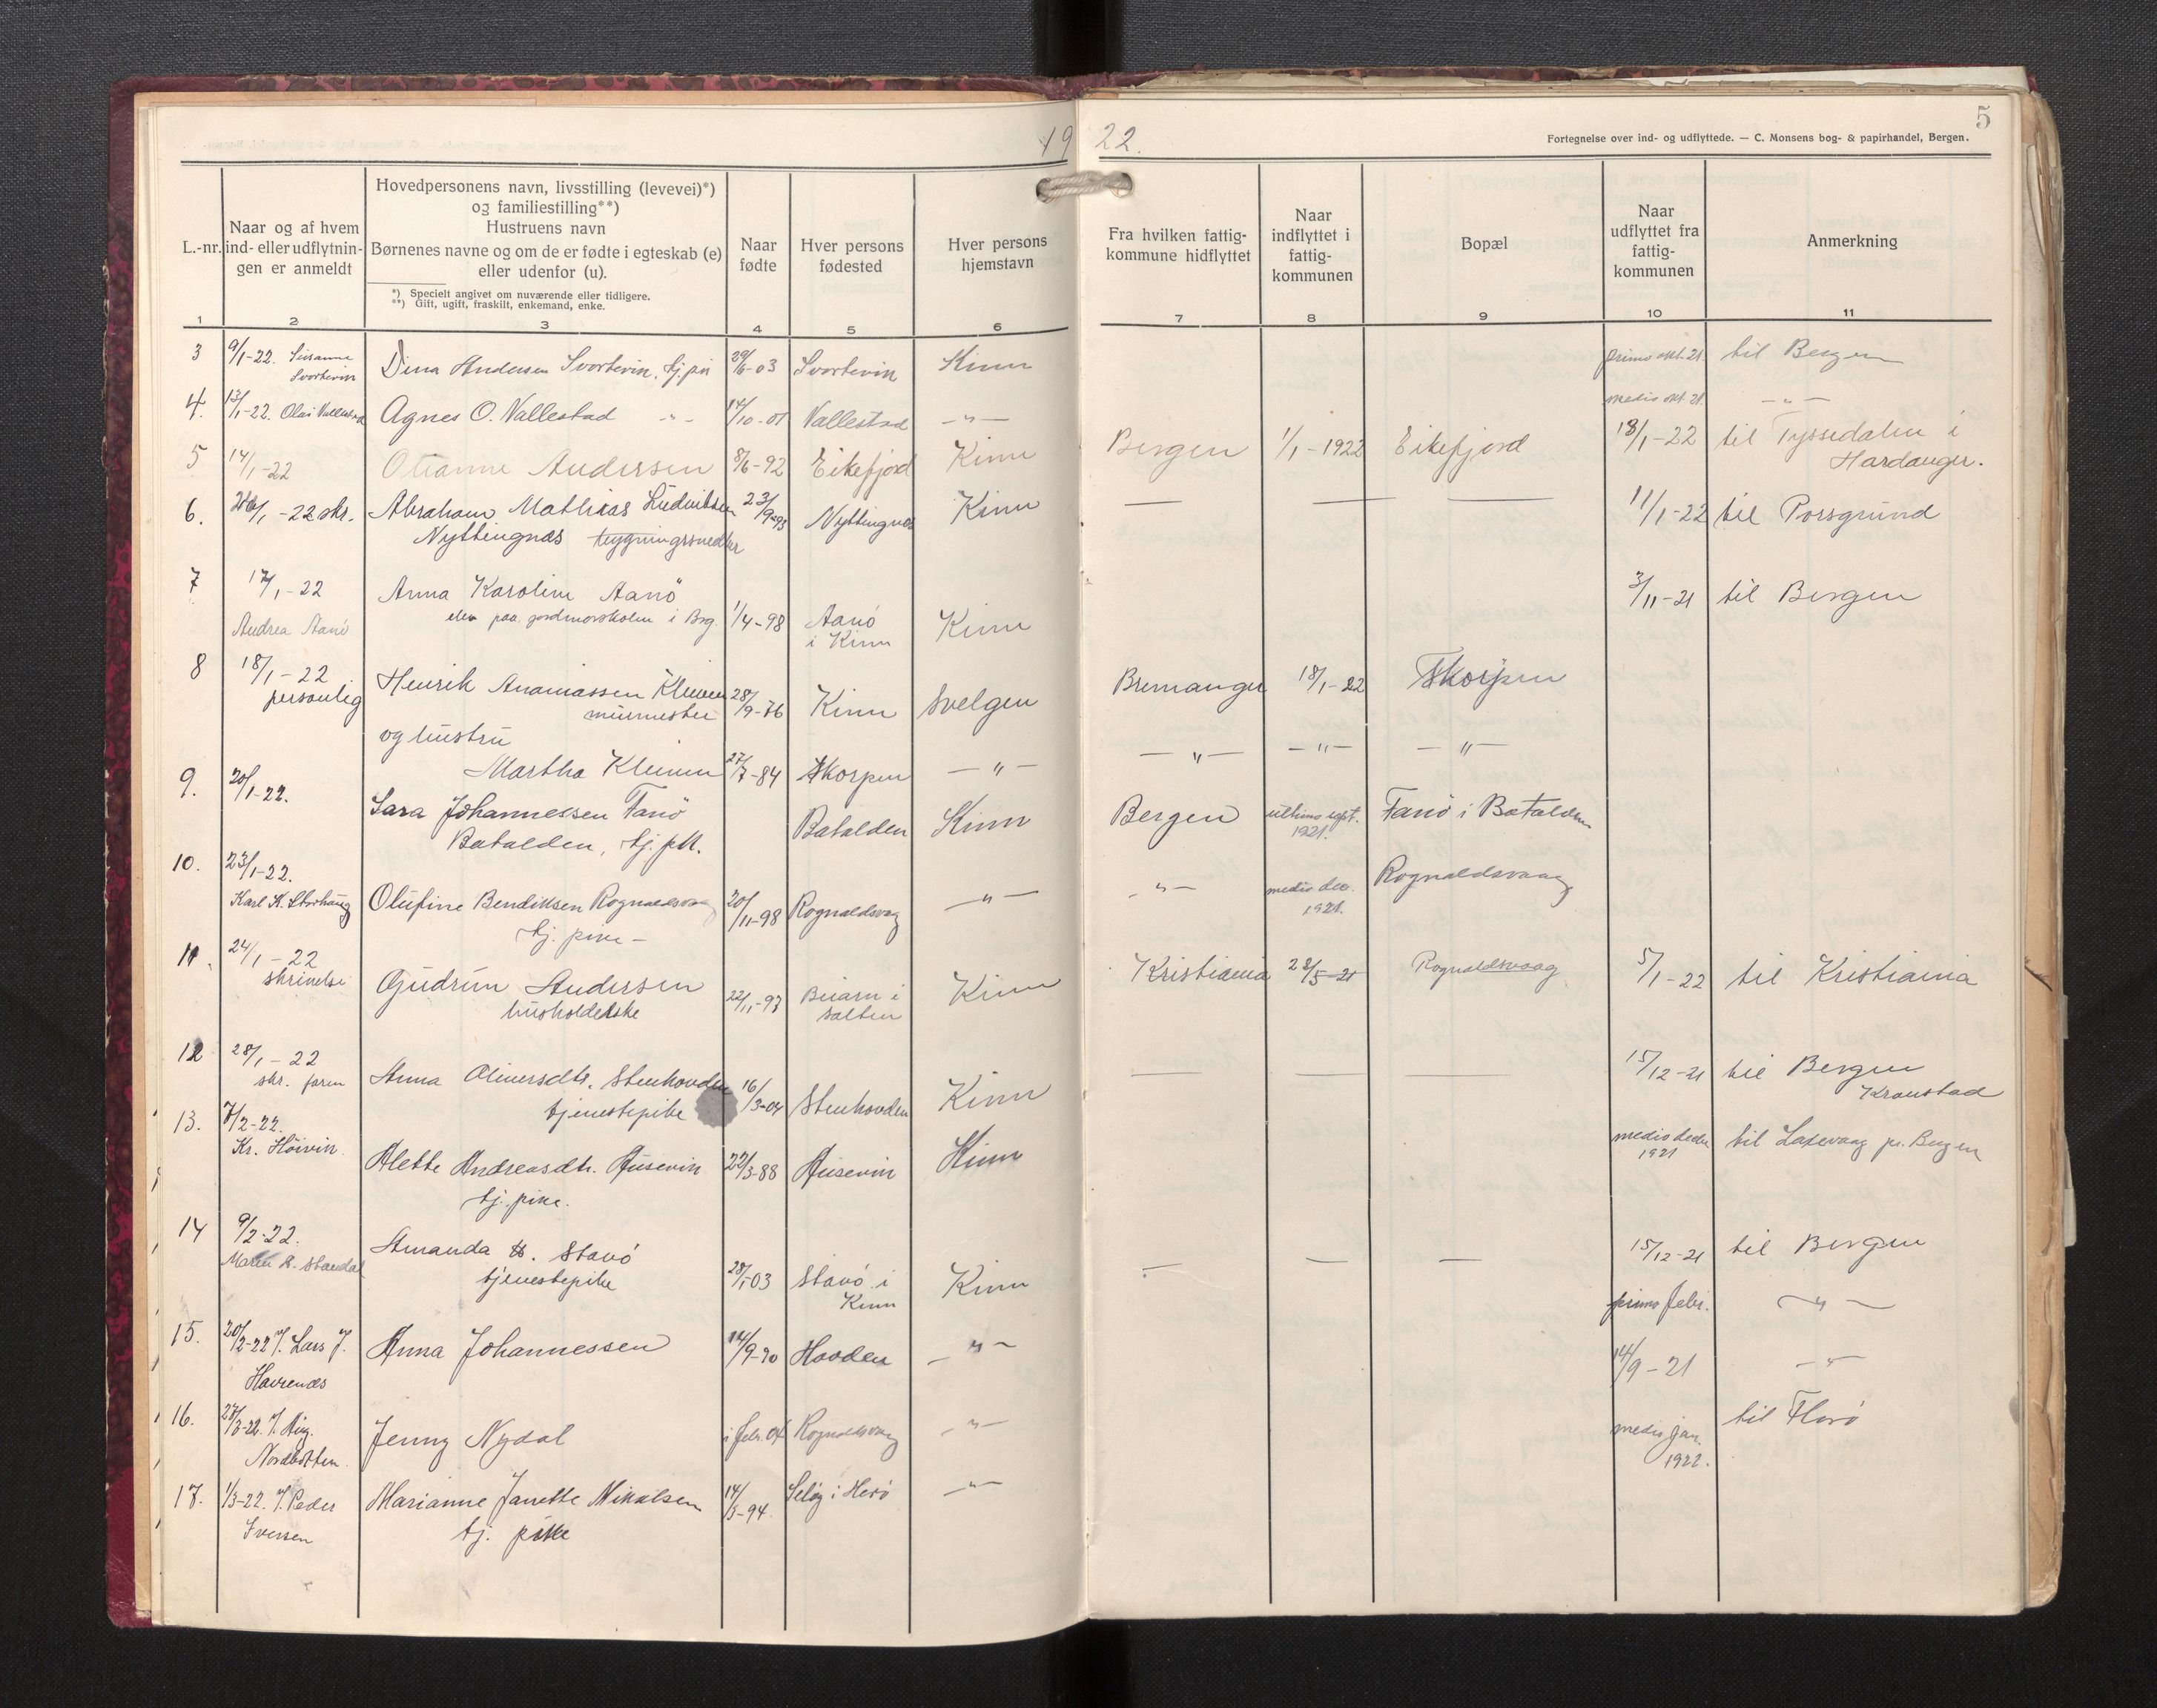 19 22.
5
Fortegnelse over ind- og udflyttede. — C. Monsens bog- & papirhandel, Bergen.
L.-nr.
Naar og af hvem
ind- eller udflytnin-
gen er anmeldt
Hovedpersonens navn, livsstilling (levevei)*)
og familiestilling**)
Hustruens navn
Børnenes navne og om de er fødte i egteskab (e)
eller udenfor (u).
*) Specielt angivet om nuværende eller tidligere.
**) Gift, ugift, fraskilt, enkemand, enke.
Naar
fødte
Hver persons
fødested
Hver persons
hjemstavn
Fra hvilken fattig-
kommune hidflyttet
Naar
indflyttet i
fattig-
kommunen
Bopæl
Naar
udflyttet fra
fattig-
kommunen
Anmerkning
1 2 3 4 5 6 7 8 9 10 11
3 9/1-22. Susanne Dina Andersen Svortevin, tj.pik 29/6-03 Svortevin Kinn primo okt. 21. til Bergen
Svortevin
4. 13/1-22. Olai Vallestad Agnes O. Vallestad -"- 14/10-01 Vallestad -"- medio okt. 21. -"-
5 14/1-22 Otianne Andersen 8/6-92 Eikefjord Kinn Bergen 1/1-1922 Eikefjord 18/1-22 til Tyssedalen i
Hardanger.
6. 16/1-22 skr. Abraham Mathias Ludviksen 23/9-93 Nyttingnes Kinn — — — 11/1-22 til Porsgrund
Nyttingnæs bygningssnedker
7 17/1-22 Anna Karoline Aanö 3/11-21 til Bergen
Andrea Aanö elev paa jordmorskolen i Brg. 1/4-98 Aanö Kinn
i Kinn
8 18/1-22 Henrik Ananiassen Kleiven 28/9-76 Kinn Svelgen Bremanger 18/1-22 Skorpen
personlig murmester
og hustru
Martha Kleiven 27/7-84 Skorpen -"- -"- -"- -"-
9. 20/1-22. Sara Johannessen Fanö Batalden Kinn Bergen ultimo sept. Fanö i Batalden
1921.
Batalden, tj.pk.
10. 23/1-22.
Karl K. Storhaug Olufine Bendiksen Rognaldsvaag 20/11-98 Rognaldsvag -"- -"- medio dec. Rognaldsvaag
1921.
tj. pike -
11. 24/1-22 Gudrun Andersen 22/11-93 Beiarn i Kinn Kristiania 28/5-21 Rognaldsvaag 5/1-22 til Kristiania
skrivelse husholderske Salten
12 28/1-22 Anna Oliversdtr. Stenhovden 16/3-04 Stenhovden Kinn — — — 15/12-21 til Bergen
skr. faren tjenestepike Kronstad
13. 7/2-22.
Kr. Höivin Alette Andreasdtr. Husevin 22/3-88 Husevin Kinn medio decbr. til Laxevaag pr. Bergen
1921
tj. pike.
14 9/2-22. Amanda H. Stavö 15/12-21 til Bergen
tjenestepike 28/1-03 Stavö i Kinn — — —
Kinn
primo febr. -"-
15. 20/2-22 f. Lars J. Anna Johannessen 14/9-90 Hovden -"- 14/9-21 -"-
Havrenæs
16. 27/2-22. f. Aug. Jenny Nydal i febr. 04 Rognaldsvaag -"- medio jan. til Florö
Nordbotten. 1922.
17. 1/3-22. f. Peder Marianne Janette Mikalsen 14/3-94 Seløy i Herö -"-
Iversen tj. pike